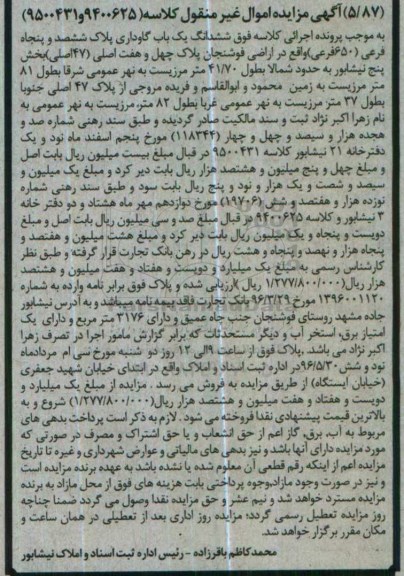 (۵/۸۷) آگهی مزایده اموال غیر منقول کلاسه (۹۴۰۰۶۲۵ و ۹۵۰۰۴۳۱)
به موجب پرونده اجرائی کلاسه فوق ششدانگ یک باب گاوداری پلاک ششصد و پنجاه
فرعی (۶۵۰ فرعی) واقع در اراضی فوشنجان پلاک چهل و هفت اصلی (۴۷ اصلی) بخش
پنج نیشابور به حدود شمالا بطول ۴۱/۷۰ متر مرزیست به نهر عمومی شرقا بطول ۸۱
متر مرزیست به زمین محمود و ابوالقاسم و فریده مروجی از پلاک ۴۷ اصلی جنوبا
بطول ۳۷ متر مرزیست به نهر عمومی غربا بطول ۸۲ متر، مرزیست به نهر عمومی به
نام زهرا اکبر نژاد ثبت و سند مالکیت صادر گردیده و طبق سند رهنی شماره صد و
هجده هزار و سیصد و چهل و چهار (۱۱۸۳۴۴) مورخ پنجم اسفند ماه نود و یک
دفترخانه ۲۱ نیشابور کلاسه ۹۵۰۰۴۳۱ در قبال مبلغ بیست میلیون ریال بابت اصل
و مبلغ چهل و پنج میلیون و هشتصد هزار ریال بابت دیر کرد و مبلغ یک میلیون و
سیصد و شصت و یک هزار و نود و پنج ریال بابت سود و طبق سند رهنی شماره
نوزده هزار و هفتصد و شش (۱۹۷۰۶) مورخ دوازدهم مهر ماه هشتاد و دو دفتر خانه
۳ نیشابور و کلاسه ۹۴۰۰۶۲۵ در قبال مبلغ صد و سی میلیون ریال بابت اصل و مبلغ
دویست و پنجاه و یک میلیون ریال بابت دیر کرد و مبلغ هشت میلیون و هفتصد و
پنجاه هزار و نهصد و پنجاه و هشت ریال در رهن بانک تجارت قرار گرفته و طبق نظر
کارشناس رسمی به مبلغ یک میلیارد و دویست و هفتاد و هفت میلیون و هشتصد
هزار ریال (۱/۲۷۷/۸۰۰/۰۰۰ ریال) ارزیابی شده و پلاک فوق برابر نامه وارده به شماره
۱۳۹۶۰۰۱۱۲۰ مورخ ۹۶/۳/۲۹ بانک تجارت فاقد بیمه نامه میباشد و به آدرس نیشابور
جاده مشهد روستای فوشنجان جنب چاه عمیق و دارای ۳۱۷۶ متر مربع و دارای یک
امتیاز برق، استخر آب و دیگر مستحدثات که برابر گزارش مامور اجرا در تصرف زهرا
اکبر نژاد می باشد .پلاک فوق از ساعت ۹ الی ۱۲ روز دو شنبه مورخ سی ام مردادماه
نود و شش ۹۶/۵/۳۰ در اداره ثبت اسناد و املاک واقع در ابتدای خیابان شهید جعفری
(خیابان ایستگاه) از طریق مزایده به فروش می رسد . مزایده از مبلغ یک میلیارد و
دویست و هفتاد و هفت میلیون و هشتصد هزار ریال (۱/۲۷۷/۸۰۰/۰۰۰) شروع و به
بالاترین قیمت پیشنهادی نقدا فروخته می شود . لازم به ذکر است پرداخت بدهی های
مربوط به آب، برق، گاز اعم از حق انشعاب و یا حق اشتراک و مصرف در صورتی که
مورد مزایده دارای آنها باشد و نیز بدهی های مالیاتی و عوارض شهرداری و غیره تا تاریخ
مزایده اعم از اینکه رقم قطعی آن معلوم شده یا نشده باشد به عهده برنده مزایده است
و نیز در صورت وجود مازاد، وجوه پرداختی بابت هزینه های فوق از محل مازاد به برنده
مزایده مسترد خواهد شد و نیم عشر و حق مزایده نقدا وصول می گردد ضمنا چناچه
روز مزایده تعطیل رسمی گردد، مزایده روز اداری بعد از تعطیلی در همان ساعت و
مکان مقرر برگزار خواهد شد.
محمد کاظم باقرزاده – رئیس اداره ثبت اسناد و املاک نیشابور